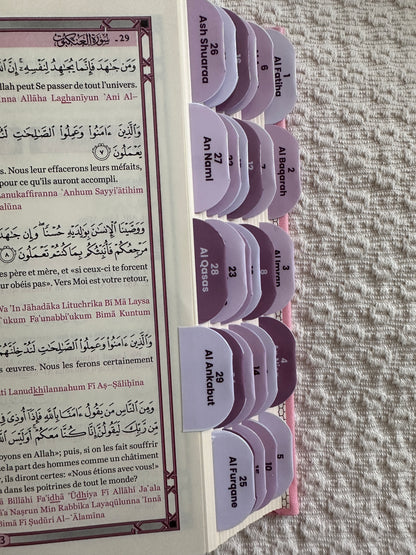 29 - سُورَةُ العَنكَبُوت
وَمَن جَٰهَدَ فَإِنَّمَا يُجَٰهِدُ لِنَفْسِهِۦٓ ۚ إِنَّ
Allah peut Se passer de tout l'univers.
Allāha Laghaniyun 'Ani Al-
وَٱلَّذِينَ ءَامَنُوا۟ وَعَمِلُوا۟ ٱلصَّٰلِحَٰتِ
يَعْمَلُونَ ٧
s. Nous leur effacerons leurs méfaits,
pour ce qu'ils auront accompli.
anukaffiranna `Anhum Sayyi'ātihim
وَوَصَّيْنَا ٱلْإِنسَٰنَ بِوَٰلِدَيْهِ حُسْنًا ۖ وَإِن جَٰهَدَ
مَرْجِعُكُمْ فَأُنَبِّئُكُم بِمَا كُنتُمْ تَعْمَلُونَ ٨
es père et mère, et «si ceux-ci te forcent
r obéis pas». Vers Moi est votre retour,
Wa 'In Jāhadāka Lituchrika Bī Mā Laysa
'ukum Fa'unabbi'ukum Bimā Kuntum
وَٱلَّذِينَ ءَامَنُوا۟ وَعَمِلُوا۟ ٱلصَّٰلِحَٰتِ لَنُدْخِلَنَّهُمْ
es œuvres. Nous les ferons certainement
ti Lanudkhilannahum Fī Aş-Şāliĥīna
وَمِنَ ٱلنَّاسِ مَن يَقُولُ ءَامَنَّا بِٱللَّهِ فَإِذَآ أُوذِىَ
مِّن رَّبِّكَ لَيَقُولُنَّ إِنَّا كُنَّا مَعَكُمْ ۚ أَوَلَيْسَ
oyons en Allah»; puis, si on les fait souffrir
e la part des hommes comme un châtiment
ils diront certes: «Nous étions avec vous!»
dans les poitrines de tout le monde?
Billāhi Fa'idhā 'Ūdhiya Fī Allāhi Ja`ala
a Naşrun Min Rabbika Layaqūlunna 'Innā
Bimā Fī Şudūri Al-`Ālamīna
3
26
Ash Shuaraa
6
1
Al Fatiha
27
An Naml
7
2
Al Baqarah
28
Al Qasas
23
8
3
Al Imran
29
Al Ankabut
14
4
25
Al Furqane
15
10
5